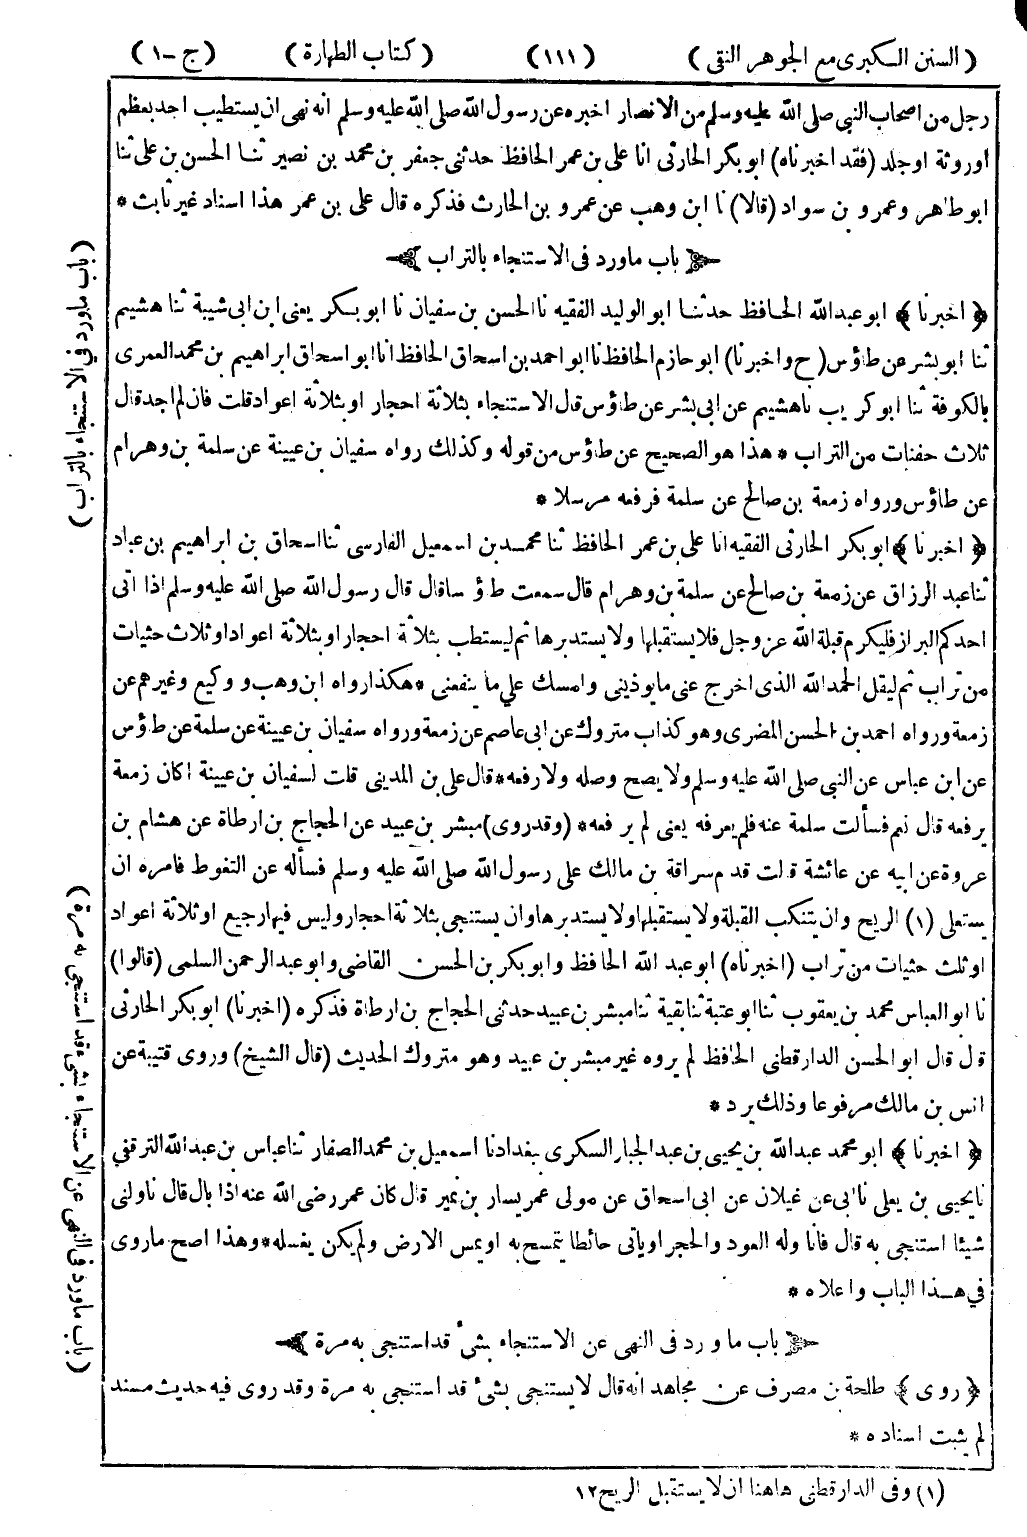 ( السنن الكبرى مع الجوهر النقى ) (١١١) ( كتاب الطهارة ) ( ج -١ )
رجل من اصحاب النبي صلى الله عليه وسلم من الانصار اخبره عن رسول الله صلى الله عليه وسلم انه نهى ان يستطيب احد بعظم
اوروثة اوجلد (فقد اخبرناه) ابوبكر الحارثى انا على بن عمر الحافظ حدثنى جعفر بن محمد بن نصير ثنا الحسن بن على ثنا
ابوطاهر وعمرو بن سواد (قالا) نا ابن وهب عن عمرو بن الحارث فذكره قال على بن عمر هذا اسناد غير ثابت *
باب ماورد فى الاستنجاء بالتراب
﴿ اخبرنا ﴾ ابو عبدالله الحافظ حدثنا ابوالوليد الفقيه نا الحسن بن سفيان نا ابوبكر يعنى ابن ابى شيبة ثنا هشيم
ثنا ابوبشر عن طاؤس (ح واخبرنا) ابوحازم الحافظ نا ابو احمد بن اسحاق الحافظ انا ابو اسحاق ابراهيم بن محمد العمرى
بالكوفة ثنا ابوكريب نا هشيم عن ابى بشر عن طاؤس قال الاستنجاء بثلاثة احجار اوبثلاثة اعواد قلت فان لم اجد قال
ثلاث حفنات من التراب * هذا هو الصحيح عن طاؤس من قوله وكذلك رواه سفيان بن عيينة عن سلمة بن وهرام
عن طاؤس ورواه زمعة بن صالح عن سلمة فرفعه مرسلا *
﴿ اخبرنا ﴾ ابوبكر الحارثى الفقيه انا على بن عمر الحافظ ثنا محمد بن اسمعيل الفارسى ثنا اسحاق بن ابراهيم بن عباد
ثنا عبد الرزاق عن زمعة بن صالح عن سلمة بن وهرام قال سمعت طاؤسا قال قال رسول الله صلى الله عليه وسلم اذا اتى
احدكم البراز فليكرم قبلة الله عزوجل فلا يستقبلها ولا يستدبرها ثم ليستطب بثلاثة احجار اوبثلاثة اعواد اوثلاث حثيات
من تراب ثم ليقل الحمد لله الذى اخرج عنى مايوذينى وامسك على ما ينفعنى * هكذا رواه ابن وهب و وكيع وغيرهم عن
زمعة ورواه احمد بن الحسن المضرى وهو كذاب متروك عن ابى عاصم عن زمعة ورواه سفيان بن عيينة عن سلمة عن طاؤس
عن ابن عباس عن النبى صلى الله عليه وسلم ولا يصح وصله ولا رفعه * قال على بن المدينى قلت لسفيان بن عيينة اكان زمعة
يرفعه قال نعم فسألت سلمة عنه فلم يعرفه يعنى لم يرفعه * (وقد روى) مبشر بن عبيد عن الحجاج بن ارطاة عن هشام بن
عروة عن ابيه عن عائشة قالت قدم سراقة بن مالك على رسول الله صلى الله عليه وسلم فسأله عن التغوط فامره ان
يستعلى (١) الريح وان يتنكب القبلة ولا يستقبلها ولا يستدبرها وان يستنجى بثلاثة احجار وليس فيها رجيع اوثلاثة اعواد
اوثلث حثيات من تراب (اخبرناه) ابوعبد الله الحافظ وابوبكر بن الحسن القاضى وابوعبدالرحمن السلمى (قالوا)
نا ابوالعباس محمد بن يعقوب ثنا ابوعتبة ثنا بقية ثنا مبشر بن عبيد حدثنى الحجاج بن ارطاة فذكره (اخبرنا) ابوبكر الحارثى
قال قال ابوالحسن الدارقطنى الحافظ لم يروه غير مبشر بن عبيد وهو متروك الحديث (قال الشيخ) وروى قتيبة عن
انس بن مالك مرفوعا وذلك يرد *
﴿ اخبرنا ﴾ ابو محمد عبدالله بن يحيى بن عبد الجبار السكرى ببغداد نا اسمعيل بن محمد الصفار ثنا عباس بن عبدالله الترقفى
نا يحيى بن يعلى نا ابى عن غيلان عن ابى اسحاق عن مولى عمر يسار بن نمير قال كان عمر رضى الله عنه اذا بال قال ناولنى
شيئا استنجى به قال فانا وله العود والحجر اوياتى حائطا يتمسح به اويمس الارض ولم يكن يغسله * وهذا اصح ماروى
في هذا الباب واعلاه *
باب ما ورد فى النهى عن الاستنجاء بشئ قد استنجى به مرة
﴿ روى ﴾ طلحة بن مصرف عن مجاهد انه قال لا يستنجى بشئ قد استنجى به مرة وقد روى فيه حديث مسند
لم يثبت اسناده *
(١) وفى الدارقطنى هاهنا ان لا يستقبل الريح ١٢
( باب ماورد فى الاستنجاء بالتراب )
( باب ماورد فى النهى عن الاستنجاء بشئ قد استنجى به مرة )